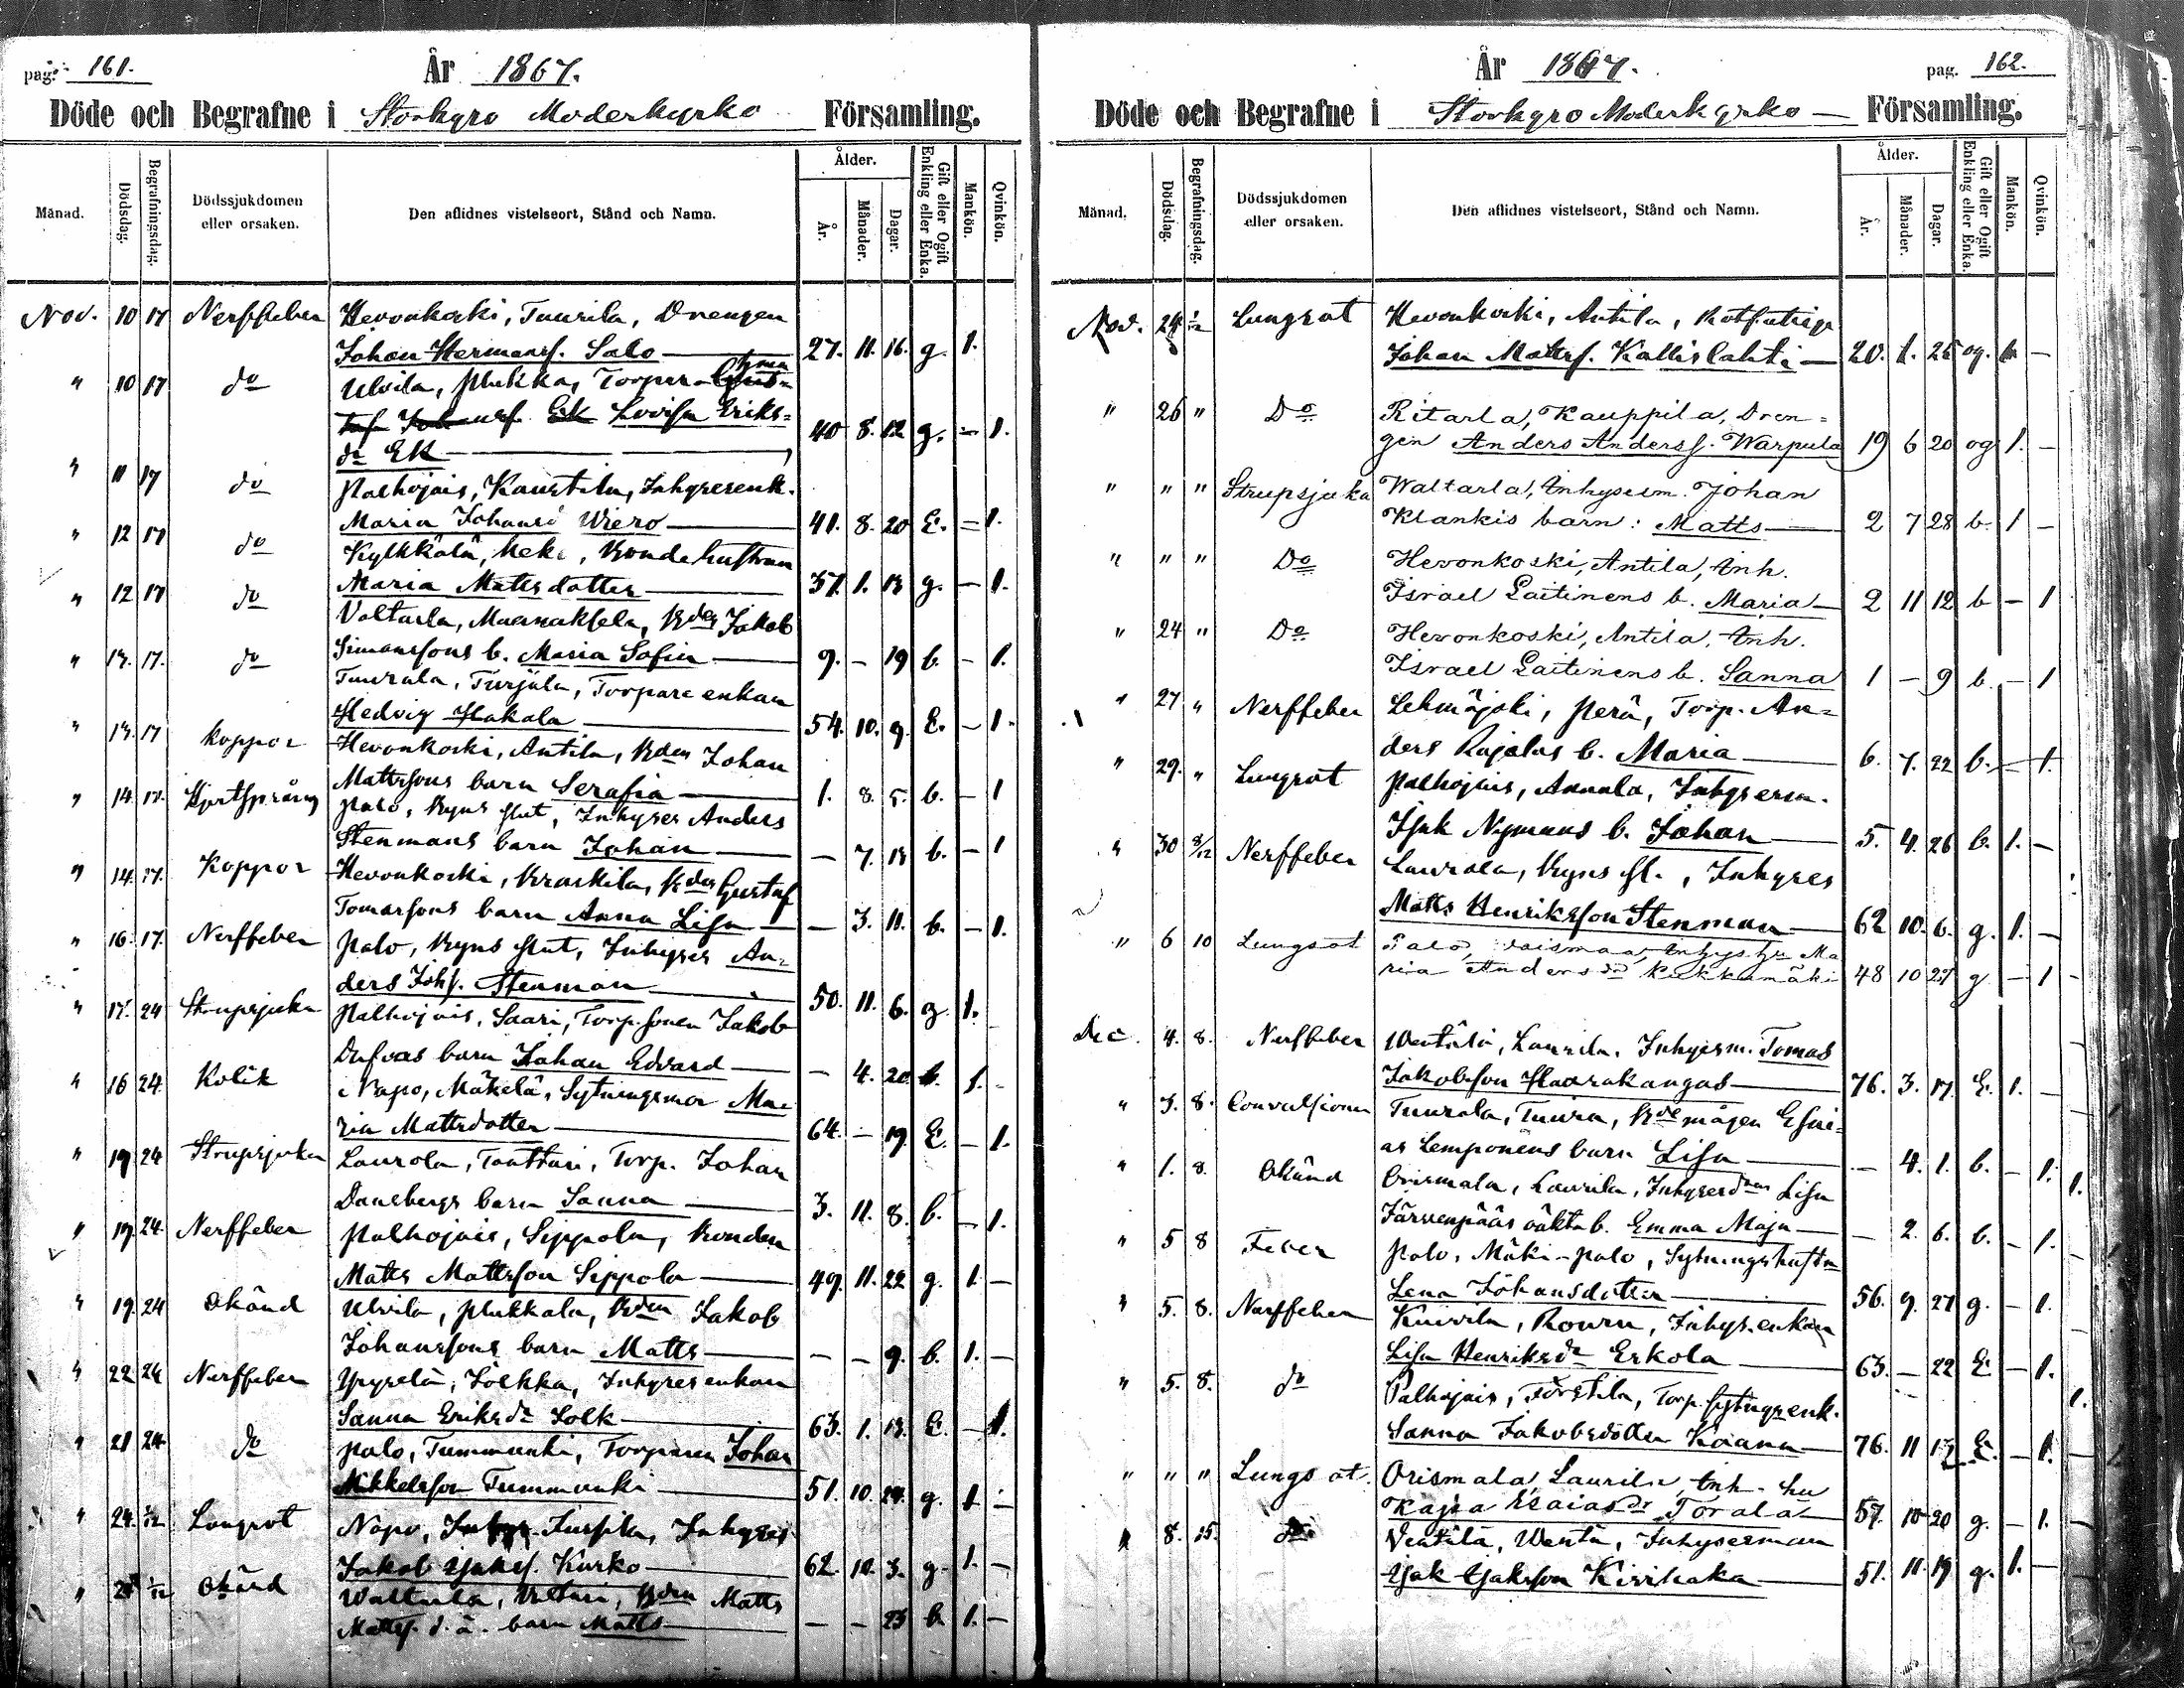 pag. 161.
År 1867.
Döde och Begrafne i Storkyro Moderkyrko Församling.
Månad.
Dödsdag.
Begrafningsdag.
Dödssjukdomen eller orsaken.
Den aflidnes vistelseort, Stånd och Namn.
Ålder.
År.
Månader.
Dagar.
Gift eller Ogift Enkling eller Enka.
Mankön.
Qvinkön.
Nov. 10 17 Nerffeber Hevonkoski, Tuurila, Drengen
Johan Hermansf. Salo 27. 11. 16. g. 1.
" 10 17 do Ulvila, Pukka, Torpar
Lovisa Eriks=
da Ek 40 8. 12 g. - 1.
" 11 17 do Palhojais, Kaurtila, Inhyresenk.
Maria Johansd Wiero 41. 8. 20 E. - 1.
" 12 17 do Kylkkälä, Bondehustrun
Maria Mattsdotter 37. 1. 13 g. - 1.
" 12 17 do Valtarla, Bden Jakob
Simanssons b. Maria Sofia 9. - 19 b. - 1.
" 13. 17. do Tuurala, Turjula, Torpare enkan
Hedvig Hakala 54. 10. 9. E. - 1.
" 13. 17 Koppor Hevonkoski, Antila, Bden Johan
Mattssons barn Serafia 1. 8. 5. b. - 1
" 14 17. Hjertsprång Palo, Byns slut, Inhyses Anders
Stenmans barn Johan - 7. 13 b. - 1
" 14. 17. Koppor Hevonkoski, Bruskila, Bden Gustaf
Tomassons barn Anna Lisa - 3. 11. b. - 1.
" 16. 17. Nerffeber Palo, Byns slut, Inhyses An=
ders Johs. Stenman 50. 11. 6. g. 1.
" 17. 24 Strupsjuka Palhojais, Saari, Torp.sonen Jakob
Dufvas barn Johan Edvard - 4. 20 b. 1. -
" 16 24 Kolik Napo, Mäkelä, Sytningsmor Ma=
ria Mattsdotter 64. - 19. E. - 1.
" 19 24 Strupsjuka Laurola, Tanttari, Torp. Johan
Danebergs barn Sanna 3. 11. 8. b. - 1.
" 19. 24. Nerffeber Palhojais, Seppola, Bonden
Matts Mattsson Seppola 49. 11. 22 g. 1. -
" 19. 24 Okänd Ulvila, Pukkala, Bden Jakob
Johanssons barn Matts - - 9. b. 1. -
" 22 24 Nerffeber Ypyrelä, Jolkka, Inhyses enkan
Sanna Eriksdr Jolk 63. 1. 13. E. - 1.
" 21 24 do Palo, Tummunki, Torparen Johan
Mikkelsson Tummunki 51. 10. 24. g. 1. -
" 24. 1/12 Lungsot Napo, Jussila, Inhyses
Jakob Isaksf. Kurko 62. 10. 3. g. 1. -
" 1/12 Okänd Waltarla, Bden Matts
Mattss. d. ä. barn Matts - - 23 b. 1. -
pag. 162.
År 1867.
Döde och Begrafne i Storkyro Moderkyrko Församling.
Månad.
Dödsdag.
Begrafningsdag.
Dödssjukdomen eller orsaken.
Den aflidnes vistelseort, Stånd och Namn.
Ålder.
År.
Månader.
Dagar.
Gift eller Ogift Enkling eller Enka.
Mankön.
Qvinkön.
Nov. 24 1/12 Lungsot Hevonkoski, Antila, Rotfattige
Johan Mattsf. Kallislahti 20. 1. 25 og. 1. -
" 26 " Do Ritarla, Kauppila, Dren=
gen Anders Anderss. Warpula 19 6 20 og 1. -
" " " Strupsjuka Waltarla, Inhysesm. Johan
Klankis barn: Matts 2 7 28 b. 1 -
" " " Do Hevonkoski, Antila, Inh.
Israel Laitinens b. Maria 2 11 12 b - 1
" 24 " Do Hevonkoski, Antila, Inh.
Israel Laitinens b. Sanna 1 - 9 b. - 1
" 27 " Nerffeber Lehmäjoki, Perä, Torp. An=
ders Rajalas b. Maria 6. 7. 22 b. - 1.
" 29. " Lungsot Palhojais, Annala, Inhysesm.
Isak Nymans b. Johan 5. 4. 26 b. 1. -
" 30 8/12 Nerffeber Laurola, Byns sl., Inhyses
Matts Henriksson Stenman 62 10. 6. g. 1. -
" 6 10 Lungsot Palo, Inhys hu Ma
ria Andersdr Kukkamäki 48 10 27 g - 1
Dec. 4. 8. Nerffeber Wentälä, Laurila, Inhysesm. Tomas
Jakobsson Haarakangas 76. 3. 17. E. 1. -
" 3. 8. Convulsioner Tuurala, Tuura, Bdemågen Esai=
as Lemponens barn Lisa - 4. 1. b. - 1.
" 1. 8. Okänd Orismala, Laurila, Inhyses Lisa
Järvenpääs oäkta b. Emma Maja - 2. 6. b. - 1.
" 5 8 Feber Palo, Mäki-palo, Sytningshustn
Lena Johansdotter 56. 9. 27 g. - 1.
" 5. 8. Nerffeber Kuivila, Rourn, Inhys.enkan
Lisa Henriksdr Erkola 63. - 22 E. - 1.
" 5. 8. do Palhojais, Förstila, Torp.sytngsenk.
Sanna Jakobsdotter Kaana 76. 11 13 E. - 1.
" " " Lungsot Orismala, Laurila, Inh. hu
Kajsa Esaiasdr Torala 57. 10 20 g. - 1.
" 8. 15. do Ventälä, Wentä, Inhysesman
Isak Isaksson Kivihaka 51. 11. 19 g. 1. -